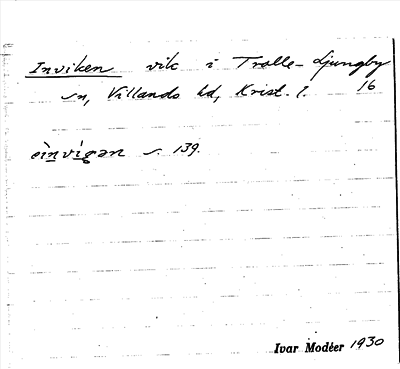 Inviken vik i Trolle-Ljungby
sn, Villands hd, Krist. l. 16
s. 139.
Ivar Modéer 1930